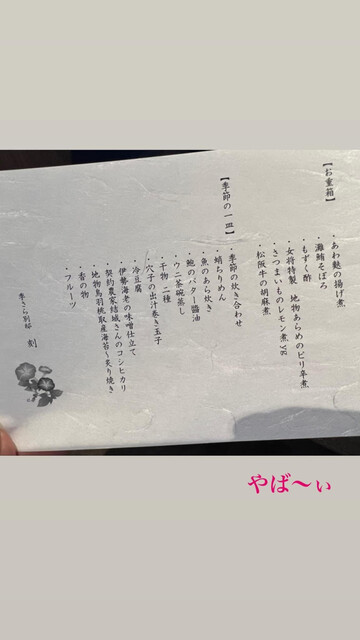 【お重箱】
・あわ麩の揚げ煮
・灘鮪そぼろ
・もずく酢
・女将特製 地物あらめのピリ辛煮
・さつまいものレモン煮
・松阪牛の胡麻煮
【季節の一皿】
・季節の炊き合わせ
・蛸ちりめん
・魚のあら炊き
・鮑のバター醤油
・ウニ茶碗蒸し
・干物 二種
・穴子の出汁巻き玉子
・冷豆腐
・伊勢海老の味噌仕立て
・契約農家結城さんのコシヒカリ
・地物鳥羽桃取産海苔～炙り焼き
・香の物
・フルーツ
季さら別邸 刻
やば〜ぃ